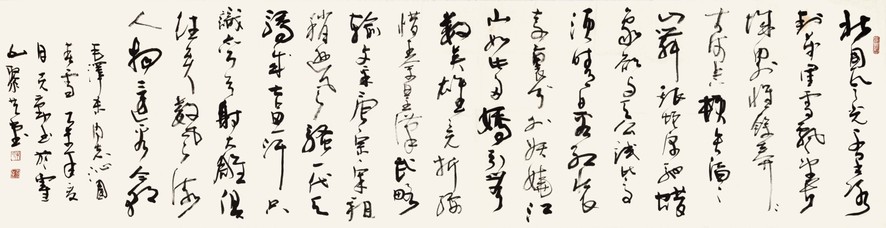 北國風光千里冰
封萬里雪飄望長
城內外惟餘莽々
大河上下頓失滔々
山舞銀蛇原馳蠟
象欲與天公試比高
須晴日看紅裝
素裹分外妖嬈江
山如此多嬌引無
數英雄競折腰
惜秦皇漢武略
輸文采唐宗宋祖
稍遜風騷一代天
驕成吉思汗只
識彎弓射大雕俱
往矣數風流
人物還看今朝
毛澤東同志沁園
春雪乙未年夏
月 書於
山 堂